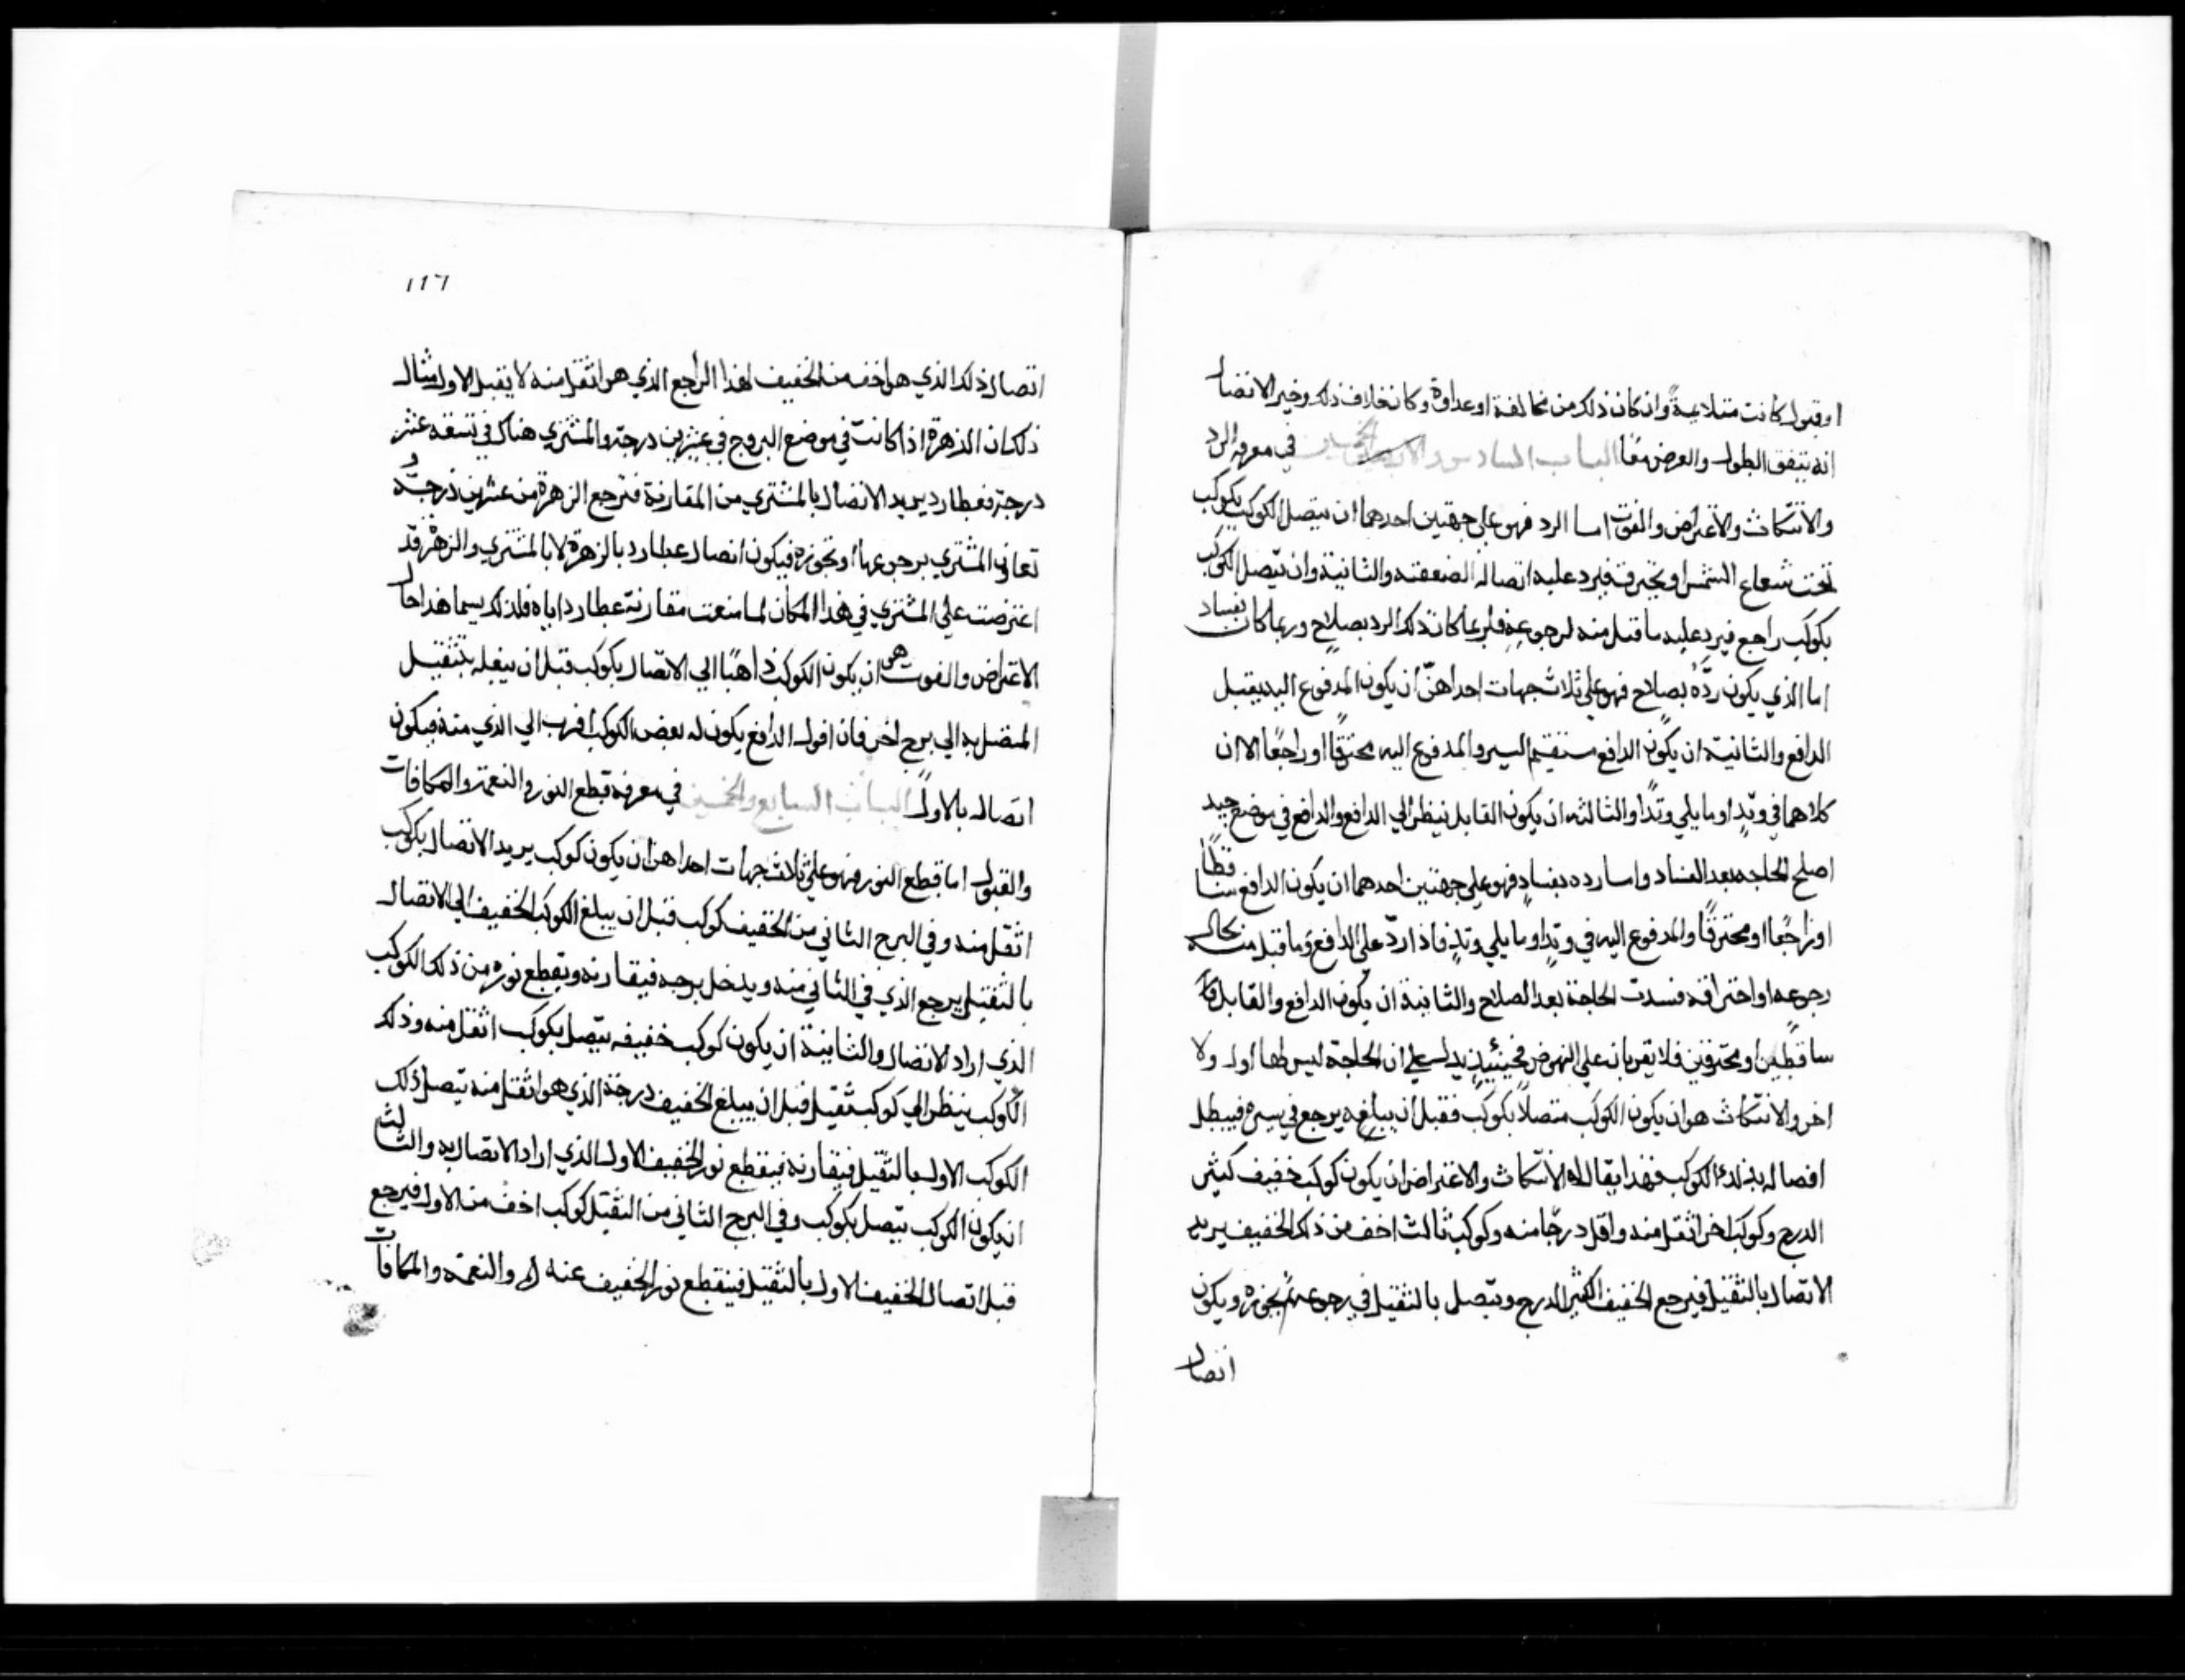 او قبول كانت متلايمةً وان كان ذلك من مخالفة او عداوة وكانخلاف ذلك وخير الاتصال
انه يتفق الطول والعرض معًا الباب السادس والخمسين في معرفه الرد
والانتكاث والاعتراض والفوت اما الرد فهو على جهتين احدهما ان يتصل الكوكب بكوكب
تحت شعاع الشمس او يحترق فيرد عليه اتصاله لضعفته والثانية وان يتصل الكوكب
بكوكب راجع فيرد عليه ما قبل منه لرجوعه فلربما كان ذلك الرد بصلاح وربما كان بفساد
اما الذي يكون ردّه بصلاح فهو على ثلاث جهات احداهنّ ان يكون المدفوع اليه يقبل
الدافع والثانية ان يكون الدافع مستقيم السير والمدفوع اليه محترقًا او راجعًا الا ان
كلاهما في وتدٍ او ما يلي وتدًا والثالثه ان يكون القابل ينظر الي الدافع والدافع في موضع جيد
اصلح الحاجه بعد الفساد واما رده بفسادٍ فهو على جهتين احدهما ان يكون الدافع ساقطًا
او راجعًا او محترقًا والمدفوع اليه في وتدٍ او ما يلي وتدٍ فاذا ردّ علي الدافع وما قبل منه بحال
رجوعه او احتراقه فسدت الحاجة بعد الصلاح والثانية ان يكون الدافع والقابل
ساقطين او محترقين فلا يقربان علي النهوض فحينئيذٍ يدل علي ان الحاجة ليس لها اول ولا
اخر والانتكاث هو ان يكون الكوكب متصلاً بكوكب فقبل ان يبلغه يرجع في سيره فيبطل
اتصاله بذلك الكوكب فهذا يقال له الانتكاث والاعتراض ان يكون كوكب خفيف كثير
الدرج وكوكب اخر اثقل منه واقل درجًا منه وكوكب ثالث اخف من ذلك الخفيف يريد
الاتصال بالثقيل فيرجع الخفيف الكثير الدرج ويتصل بالثقيل في رجوعه ثم يجوزه ويكون
اتصال
١٢٦
اتصال ذلك الذي هو اخف من الخفيف لهذا الراجع الذي هو اثقل منه لا يقبل الاول مثال
ذلك ان الزهرة اذا كانت في موضع البروج في عشرين درجة والمشتري هناك في تسعه عشر
درجة فعطارد يريد الاتصال بالمشتري من المقارنة فترجع الزهرة من عشرين درجة
المشتري برجوعها او تجوزه فيكون اتصال عطارد بالزهرة لا بالمشتري والزهرة قد
اعترضت علي المشتري في هذا المكان لما منعت مقارنة عطارد اياه فلذلك يسما هذا حال
الاعتراض والفوت هو ان يكون الكوكب ذاهبًا الي الاتصال بكوكب قبل ان
المتصل به الي برج اخر فان افول الدافع يكون له بعض الكوكب اقرب الي الذي منه فيكون
اتصاله بالاول الباب السابع والخمسين في معرفة قطع النور والنعمة والمكافات
والقبول اما قطع النور فهو علي ثلاث جهات احداهن ان يكون كوكب يريد الاتصال بكوكب
اثقل منه وفي البرج الثاني من الخفيف كوكب قبل ان يبلغ الكوكب الخفيف الي الاتصال
بالثقيل يرجع الذي في الثاني منه ويدخل برجه فيقارنه ويقطع نوره من ذلك الكوكب
الذي اراد الاتصال والثانية ان يكون كوكب خفيفه يتصل بكوكب اثقل منه وذلك
الكوكب ينظر الي كوكب ثقيل فقبل ان يبلغ الخفيف درجة الذي هو اثقل منه يتصل ذلك
الكوكب الاول بالثقيل فيقارنه فينقطع نور الخفيف الاول الذي اراد الاتصال به والثالث
ان يكون الكوكب يتصل بكوكب وفي البرج الثاني من الثقيل كوكب اخف من الاول فيرجع
قبل اتصال الخفيف الاول بالثقيل فينقطع نور الخفيف عنه والنعمه والمكافات